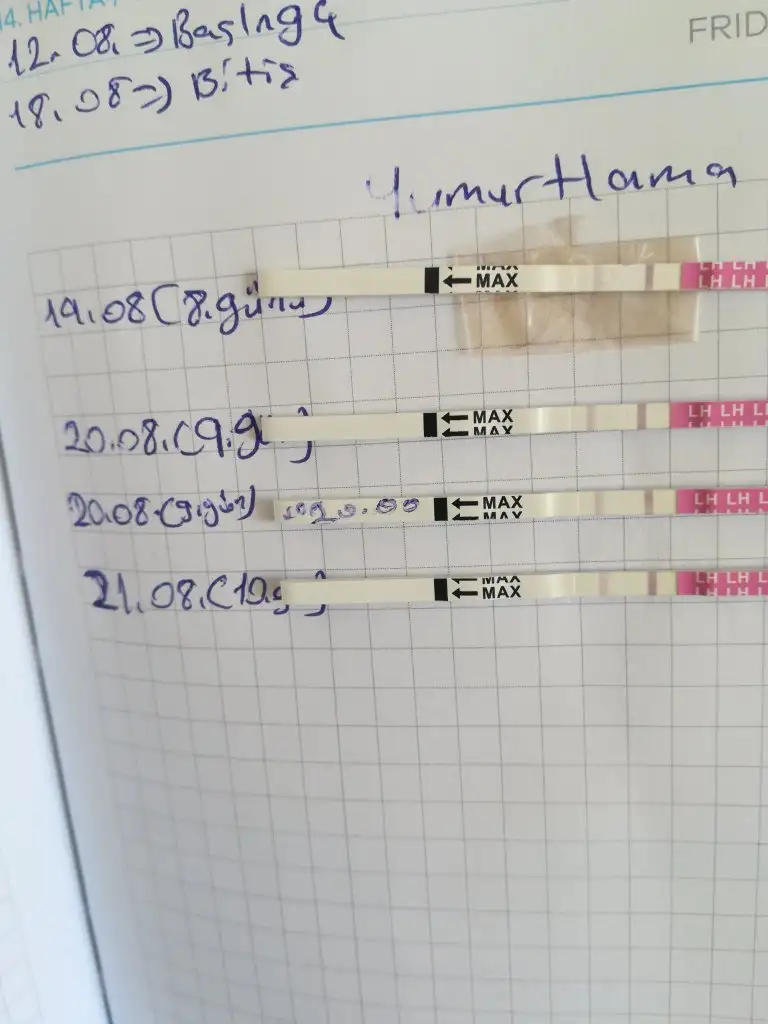 14. HAFTA
12.08. => Başlngç
FRID
18.08 => Bitiş
Yumurtlama
19.08 (8.günü)
MAX
MAX
LH LH
LH LH L
20.08.(9.g
MAX
MAX
LH LH L
LH LH L
20.08.(9.gün)
MAX
MAX
LH LH L
LH LH L
21.08.(10.g
MAX
MAX
LH LH L
LH LH L